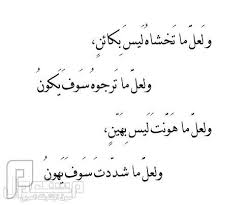 ولعلّ ما تَخشاهُ لَيسَ بِكائنٍ،
ولعلّ ما تَرجوهُ سَوفَ يَكونُ
ولعلّ ما هَوّنتَ لَيسَ بِهَيّنٍ،
ولعلّ ما شدّدتَ سَوفَ يَهونُ